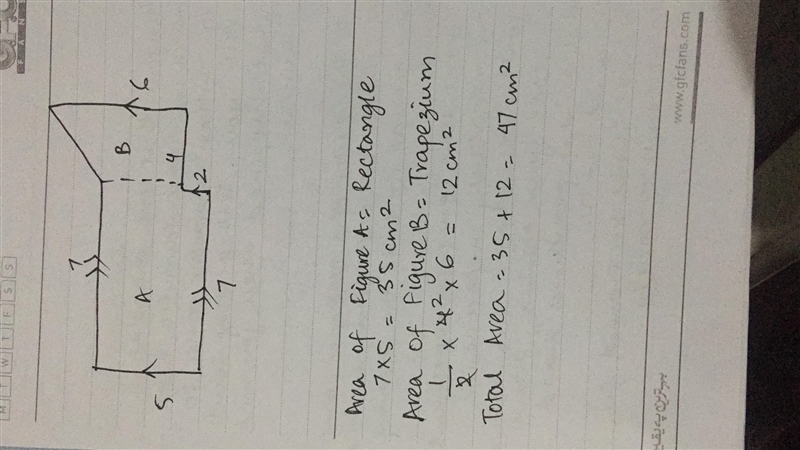 M T W T F S S
GFC
FANS
7
A
B
6
4
2
5
7
Area of Figure A = Rectangle
7 x 5 = 35 cm²
Area of Figure B = Trapezium
1/2 x 4² x 6 = 12 cm²
Total Area = 35 + 12 = 47 cm²
www.gfcfans.com